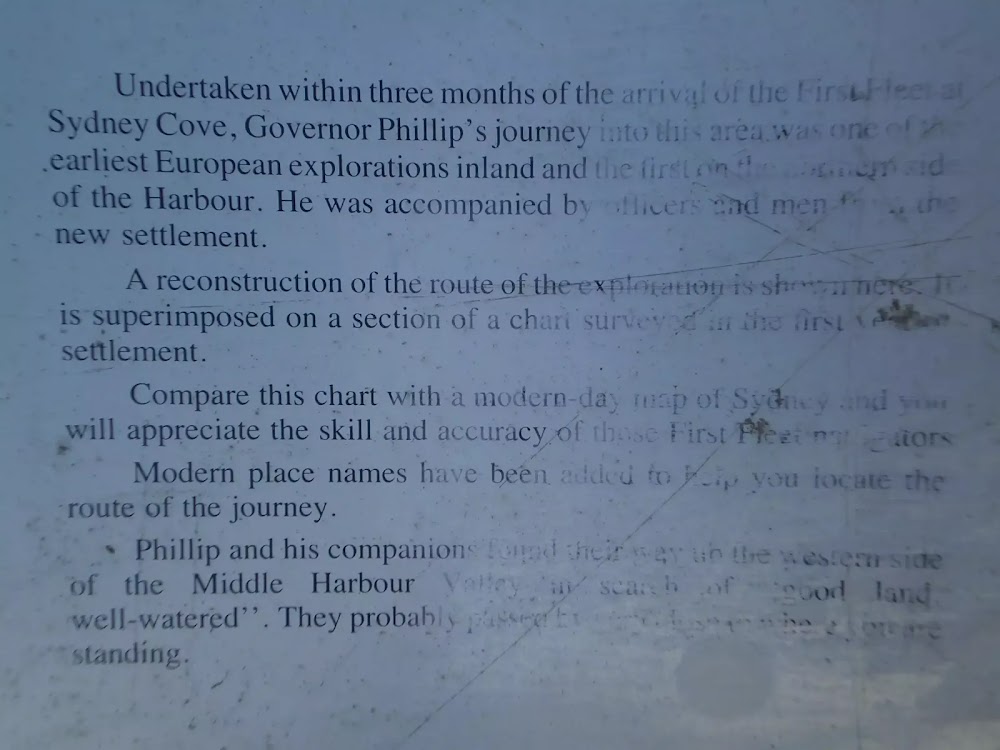 Undertaken within three months of the arrival of the First Fleet at
Sydney Cove, Governor Phillip's journey into this area was one of the
earliest European explorations inland and the first on the northern side
of the Harbour. He was accompanied by officers and men from the
new settlement.
A reconstruction of the route of the exploration is shown here. It
is superimposed on a section of a chart surveyed in the first
settlement.
Compare this chart with a modern-day map of Sydney and you
will appreciate the skill and accuracy of those First Fleet navigators
Modern place names have been added to help you locate the
route of the journey.
Phillip and his companions found their way up the western side
of the Middle Harbour Valley in search of "good land
well-watered". They probably passed
standing.